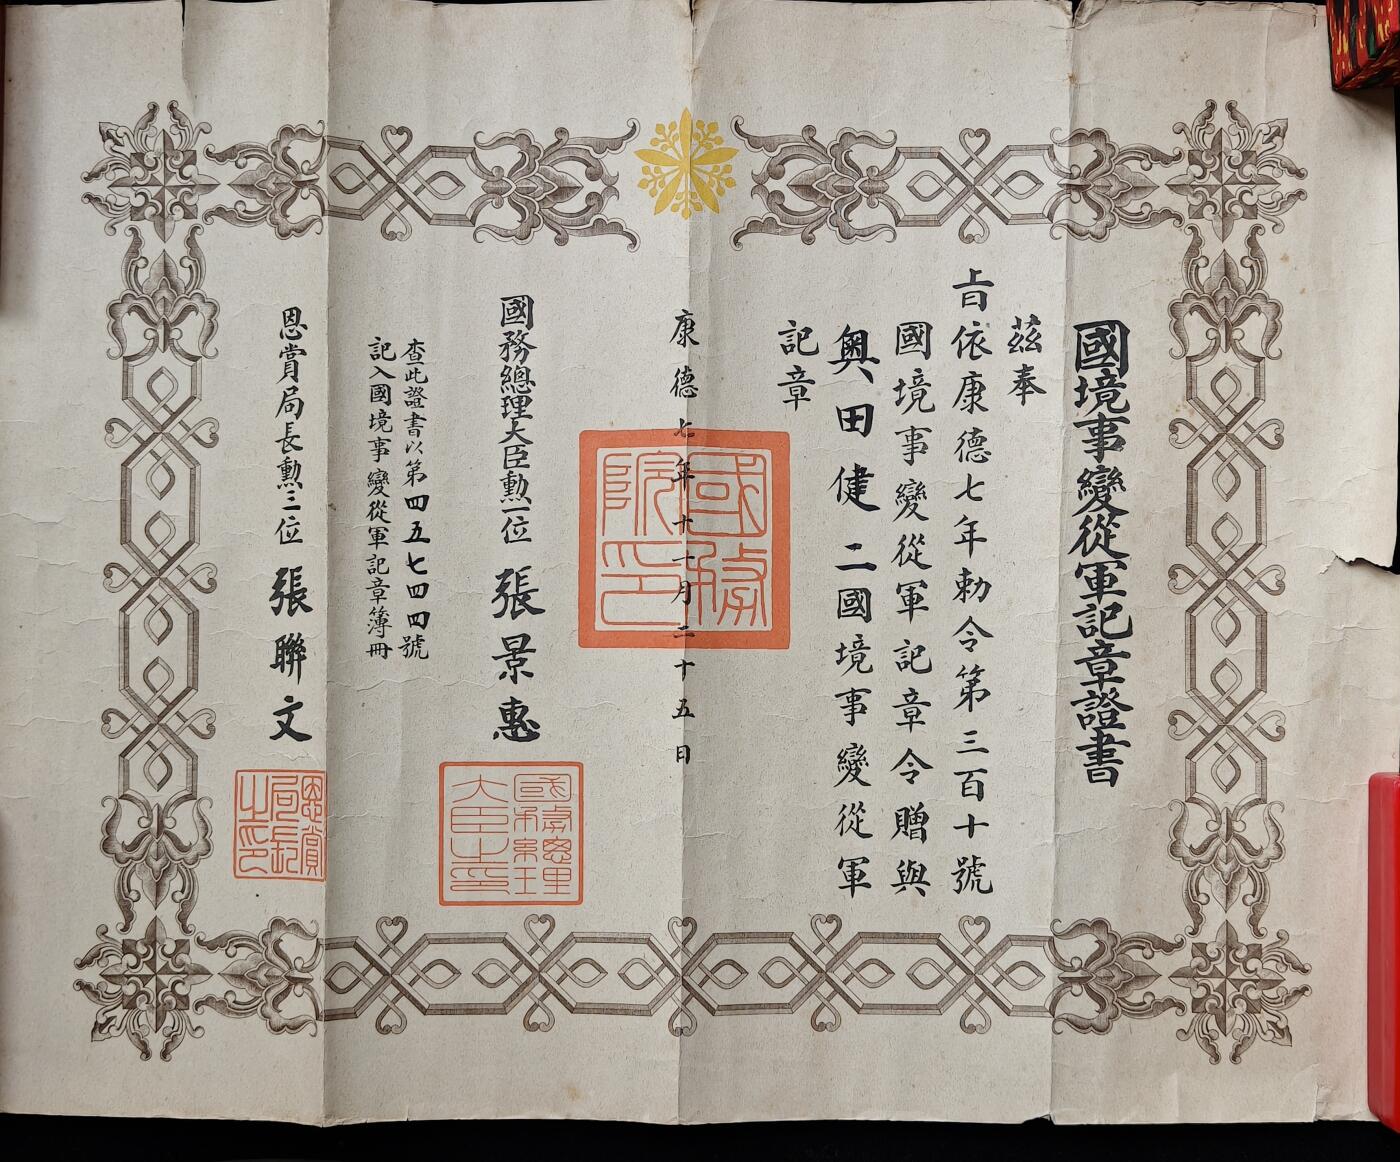 國境事變從軍記章證書
茲奉
旨依康德七年勅令第三百十號
國境事變從軍記章令贈與
奧田健二國境事變從軍
記章
康德七年十一月二十五日
國務院印
國務總理大臣勲一位 張景惠
國務總理大臣之印
查此證書以第四五七四四號
記入國境事變從軍記章簿冊
恩賞局長勲三位 張聯文
恩賞局長之印